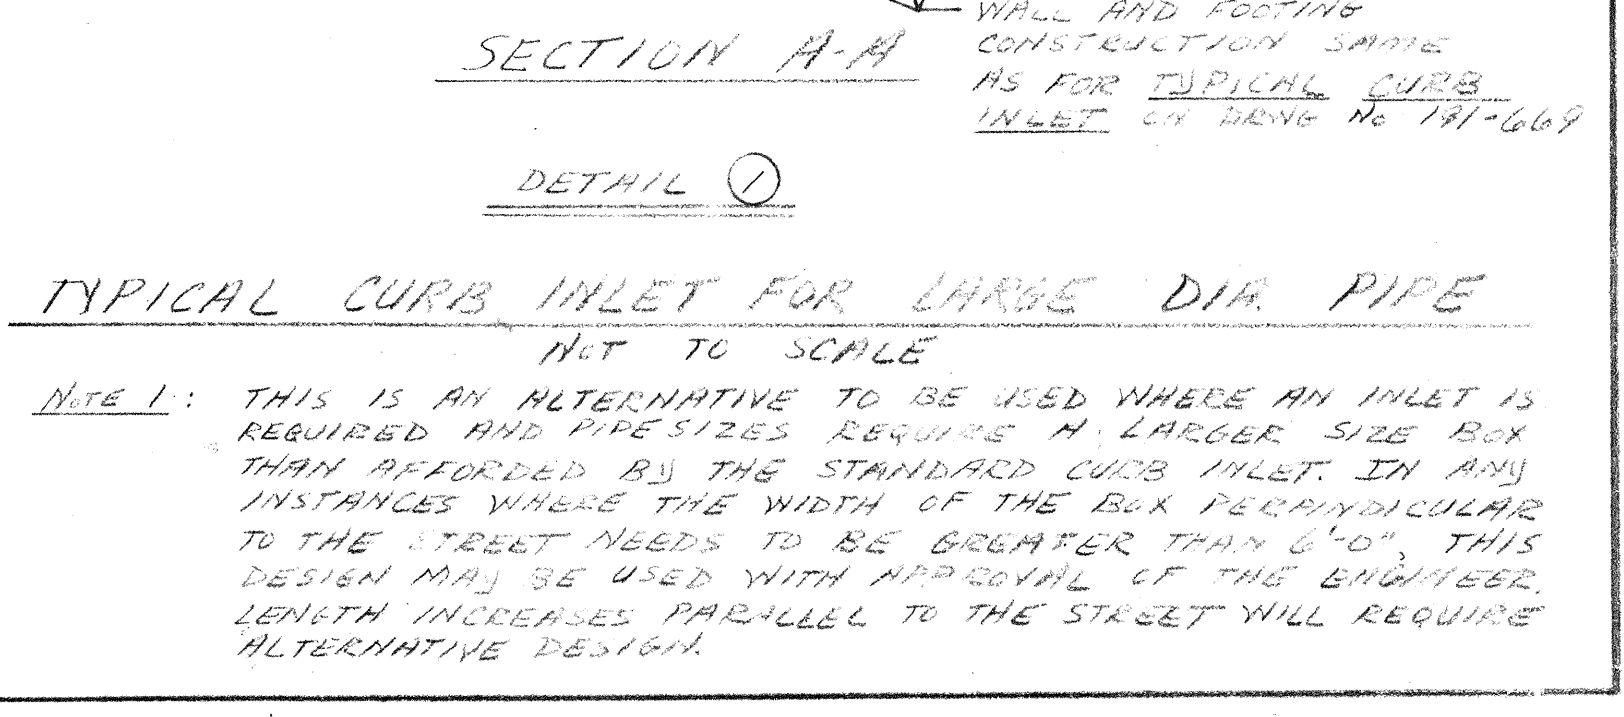 SECTION A-A
WALL AND FOOTING
CONSTRUCTION SAME
AS FOR TYPICAL CURB
INLET ON DRWG No 191-669
DETAIL 1
TYPICAL CURB INLET FOR LARGE DIA. PIPE
NOT TO SCALE
NOTE 1: THIS IS AN ALTERNATIVE TO BE USED WHERE AN INLET IS
REQUIRED AND PIPE SIZES REQUIRE A LARGER SIZE BOX
THAN AFFORDED BY THE STANDARD CURB INLET. IN ANY
INSTANCES WHERE THE WIDTH OF THE BOX PERPINDICULAR
TO THE STREET NEEDS TO BE GREATER THAN 6'-0", THIS
DESIGN MAY BE USED WITH APPROVAL OF THE ENGINEER.
LENGTH INCREASES PARALLEL TO THE STREET WILL REQUIRE
ALTERNATIVE DESIGN.